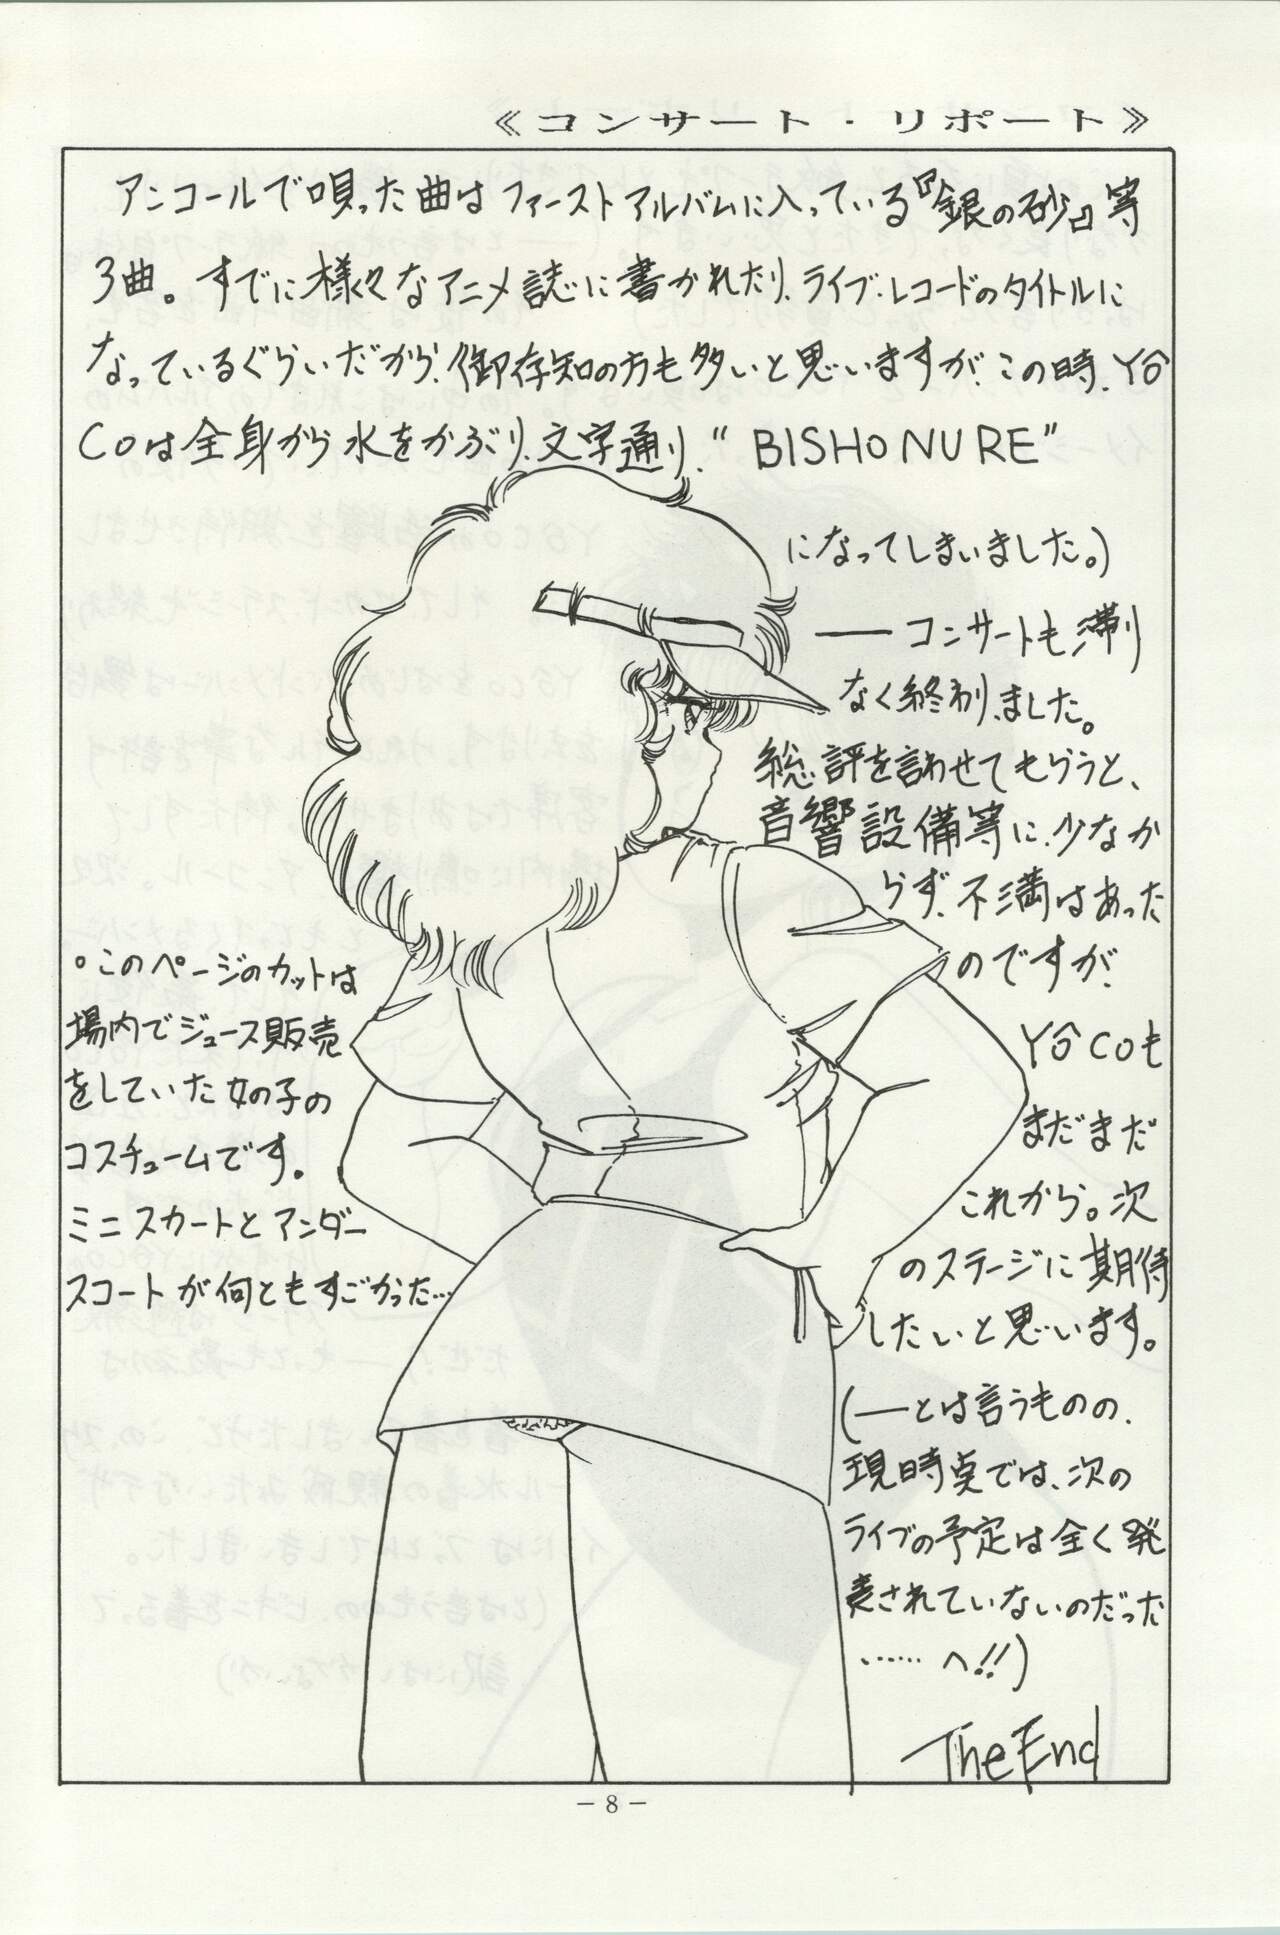 《コンサート・リポート》
アンコールで唄った曲はファーストアルバムに入っている『銀の砂』等
3曲。すでに様々なアニメ誌に書かれたり、ライブ・レコードのタイトルに
なっているぐらいだから、御存知の方も多いと思いますが、この時、YŌ
COは全身から水をかぶり、文字通り、“BISHONURE”
になってしまいました。)
──コンサートも滞り
なく終わりました。
総評を言わせてもらうと、
音響設備等に、少なか
らず、不満はあった
のですが、
YŌCOも
まだまだ
これから。次
のステージに期待
したいと思います。
(──とは言うものの、
現時点では、次の
ライブの予定は全く発
表されていないのだった
……へ!!)
The End
○このページのカットは
場内でジュース販売
をしていた女の子の
コスチュームです。
ミニスカートとアンダー
スコートが何ともすごかった…
－8－